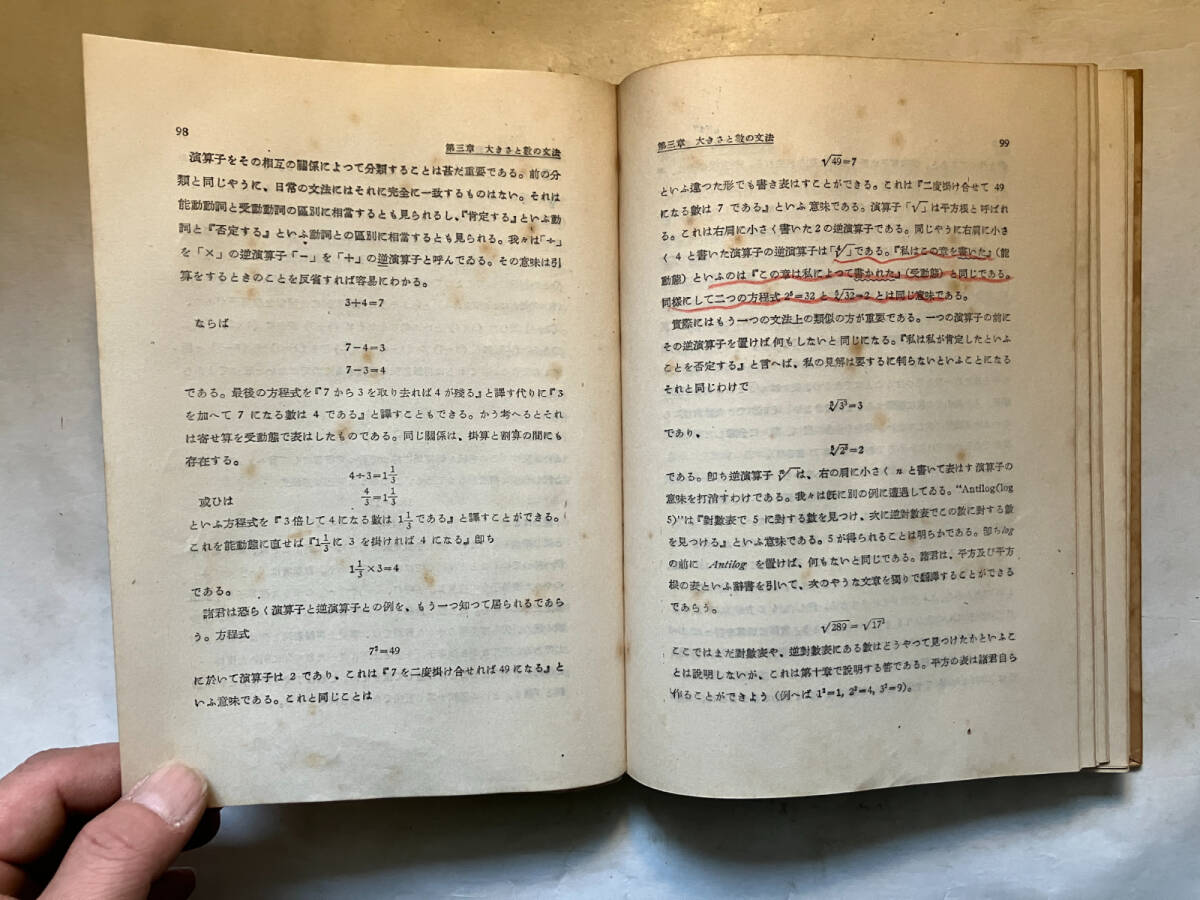 98
第三章 大きさと數の文法
演算子をその相互の關係によつて分類することは甚だ重要である。前の分
類と同じやうに、日常の文法にはそれに完全に一致するものはない。それは
能動動詞と受動動詞の區別に相當するとも見られるし、『肯定する』といふ動
詞と『否定する』といふ動詞との區別に相當するとも見られる。我々は「÷」
を「×」の逆演算子「−」を「+」の逆演算子と呼んでゐる。その意味は引
算をするときのことを反省すれば容易にわかる。
3+4=7
ならば
7−4=3
7−3=4
である。最後の方程式を『7から3を取り去れば4が殘る』と譯す代りに『3
を加へて 7 になる數は 4 である』と譯すこともできる。かう考へるとそれ
は寄せ算を受動態で表はしたものである。同じ關係は、掛算と割算の間にも
存在する。
4÷3=1 1/3
或ひは
4/3=1 1/3
といふ方程式を『3倍して4になる數は 1 1/3 である』と譯すことができる。
これを能動態に直せば『1 1/3 に 3 を掛ければ 4 になる』卽ち
1 1/3×3=4
である。
諸君は恐らく演算子と逆演算子との例を、もう一つ知つて居られるであら
う。方程式
7²=49
に於いて演算子は 2 であり、これは『7を二度掛け合せれば49になる』と
いふ意味である。これと同じことは
第三章 大きさと數の文法
99
√49=7
といふ違つた形でも書き表はすことができる。これは『二度掛け合せて 49
になる數は 7 である』といふ意味である。演算子「√」は平方根と呼ばれ
る。これは右肩に小さく書いた2の逆演算子である。同じやうに右肩に小さ
く 4 と書いた演算子の逆演算子は「∜」である。『私はこの章を書いた』(能
動態)といふのは『この章は私によつて書かれた』(受動態)と同じである。
同樣にして二つの方程式 2⁵=32 と ⁵√32=2 とは同じ意味である。
實際にはもう一つの文法上の類似の方が重要である。一つの演算子の前に
その逆演算子を置けば何もしないと同じになる。『私は私が肯定したといふ
ことを否定する』と言へば、私の見解は要するに判らないといふことになる
それと同じわけで
∛3³=3
であり、
である。卽ち逆演算子 ⁿ√ は、右の肩に小さく n と書いて表はす演算子の
意味を打消すわけである。我々は旣に別の例に遭遇してゐる。“Antilog(log
5)”は『對數表で 5 に對する數を見つけ、次に逆對數表でこの數に對する數
を見つける』といふ意味である。5が得られることは明らかである。卽ちlog
の前に Antilog を置けば、何もないと同じである。諸君は、平方及び平方
根の表といふ辭書を引いて、次のやうな文章を獨りで飜譯することができる
であらう。
√289=√17²
ここではまだ對數表や、逆對數表にある數はどうやつて見つけたかといふこ
とは說明しないが、これは第十章で說明する筈である。平方の表は諸君自ら
作ることができよう (例へば 1²=1, 2²=4, 3²=9)。